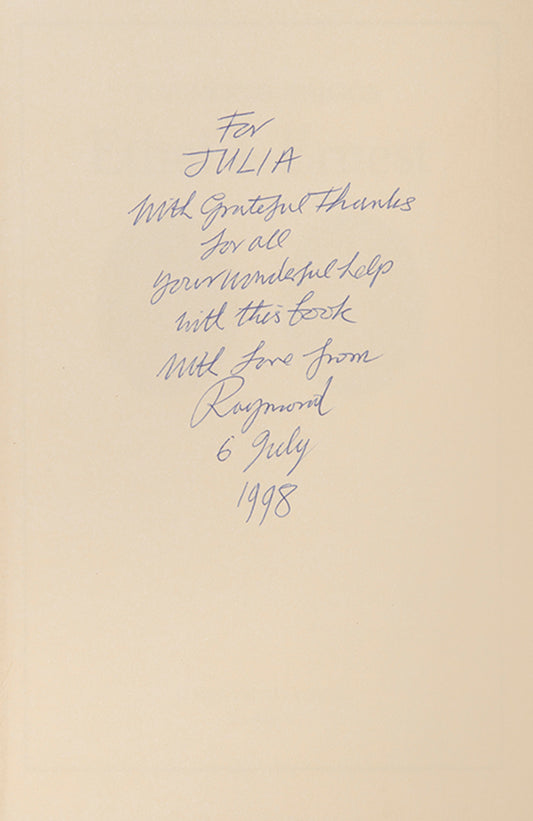 For
JULIA
With Grateful Thanks
for all
your wonderful help
with this book
With love from
Raymond
6 July
1998